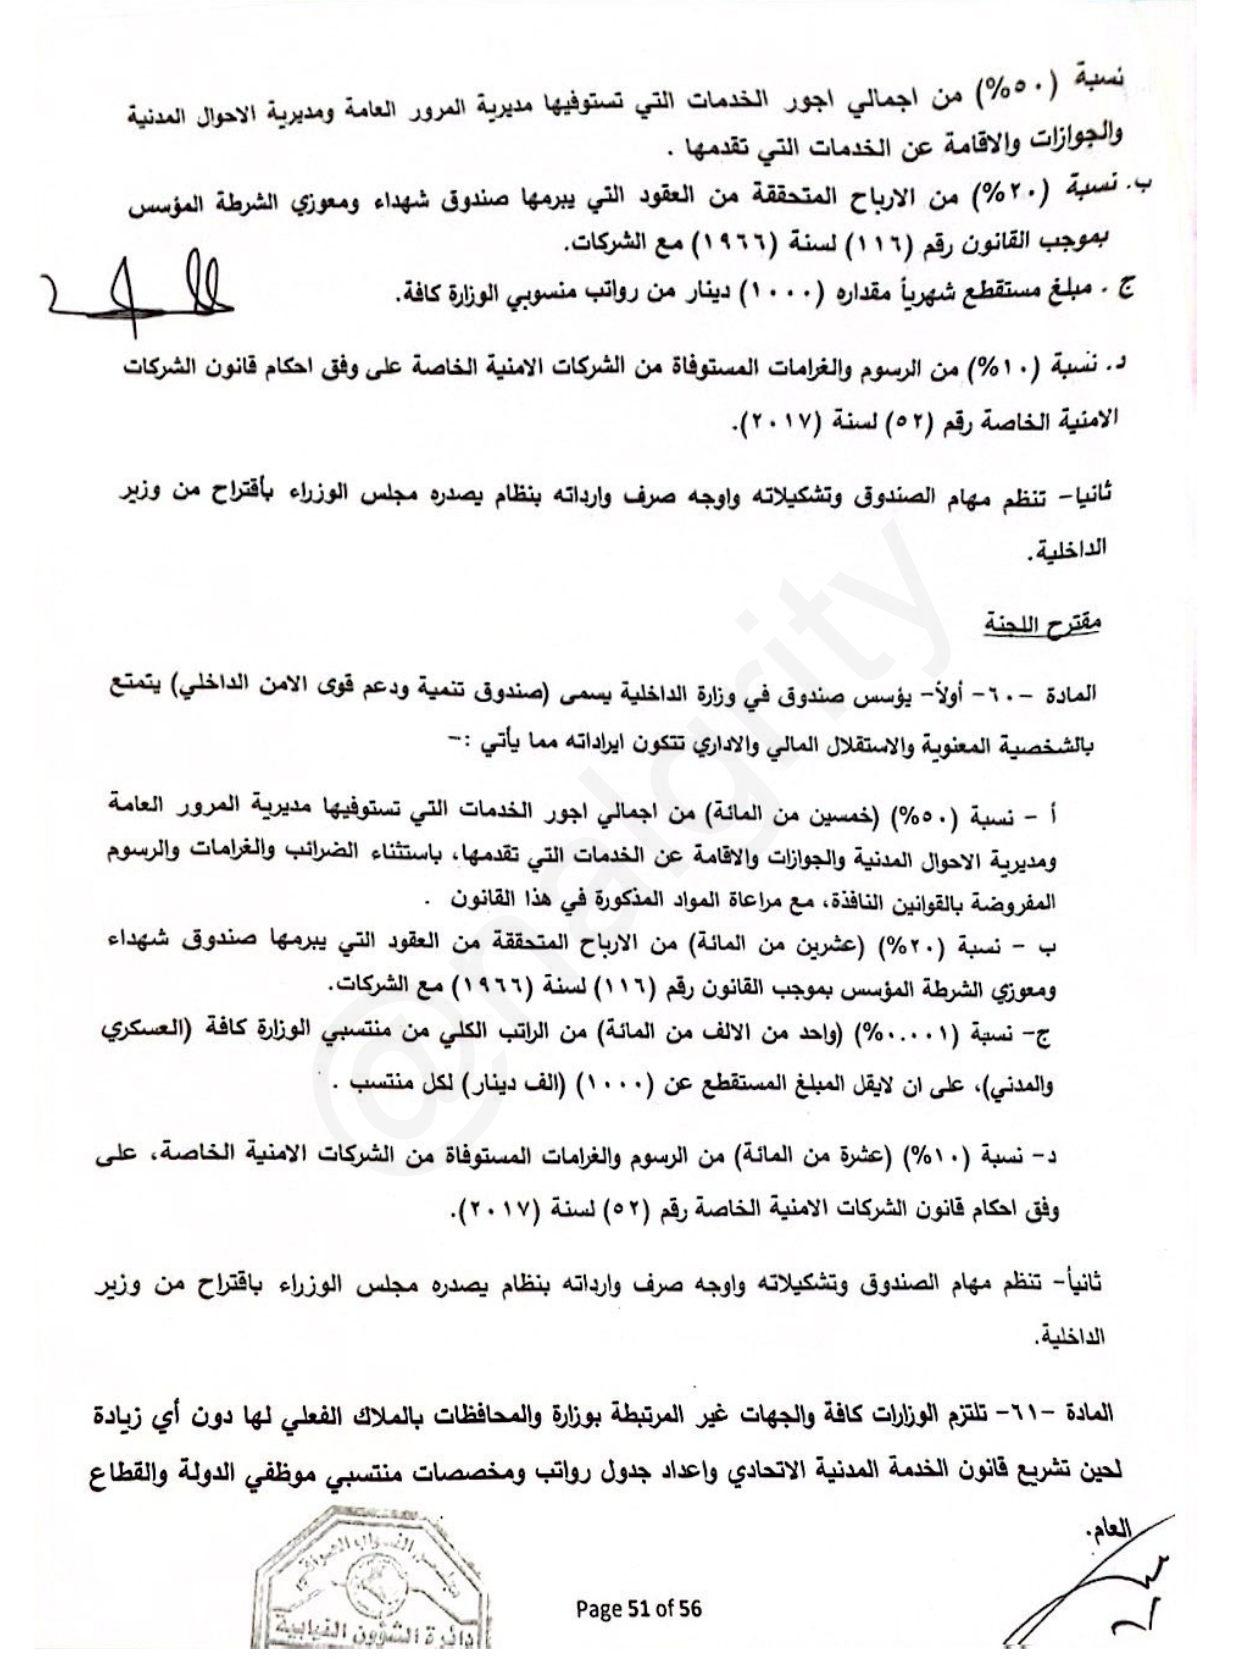 نسبة (٥٠%) من اجمالي اجور الخدمات التي تستوفيها مديرية المرور العامة ومديرية الاحوال المدنية
والجوازات والاقامة عن الخدمات التي تقدمها .
ب. نسبة (٢٠%) من الارباح المتحققة من العقود التي يبرمها صندوق شهداء ومعوزي الشرطة المؤسس
بموجب القانون رقم (١١٦) لسنة (١٩٦٦) مع الشركات.
ج . مبلغ مستقطع شهرياً مقداره (١٠٠٠) دينار من رواتب منسوبي الوزارة كافة.
د. نسبة (١٠%) من الرسوم والغرامات المستوفاة من الشركات الامنية الخاصة على وفق احكام قانون الشركات
الامنية الخاصة رقم (٥٢) لسنة (٢٠١٧).
ثانيا- تنظم مهام الصندوق وتشكيلاته واوجه صرف وارداته بنظام يصدره مجلس الوزراء بأقتراح من وزير
الداخلية.
مقترح اللجنة
المادة -٦٠- أولاً- يؤسس صندوق في وزارة الداخلية يسمى (صندوق تنمية ودعم قوى الامن الداخلي) يتمتع
بالشخصية المعنوية والاستقلال المالي والاداري تتكون ايراداته مما يأتي :-
أ - نسبة (٥٠%) (خمسين من المائة) من اجمالي اجور الخدمات التي تستوفيها مديرية المرور العامة
ومديرية الاحوال المدنية والجوازات والاقامة عن الخدمات التي تقدمها، باستثناء الضرائب والغرامات والرسوم
المفروضة بالقوانين النافذة، مع مراعاة المواد المذكورة في هذا القانون .
ب - نسبة (٢٠%) (عشرين من المائة) من الارباح المتحققة من العقود التي يبرمها صندوق شهداء
ومعوزي الشرطة المؤسس بموجب القانون رقم (١١٦) لسنة (١٩٦٦) مع الشركات.
ج- نسبة (٠.٠٠١%) (واحد من الالف من المائة) من الراتب الكلي من منتسبي الوزارة كافة (العسكري
والمدني)، على ان لايقل المبلغ المستقطع عن (١٠٠٠) (الف دينار) لكل منتسب .
د- نسبة (١٠%) (عشرة من المائة) من الرسوم والغرامات المستوفاة من الشركات الامنية الخاصة، على
وفق احكام قانون الشركات الامنية الخاصة رقم (٥٢) لسنة (٢٠١٧).
ثانياً- تنظم مهام الصندوق وتشكيلاته واوجه صرف وارداته بنظام يصدره مجلس الوزراء باقتراح من وزير
الداخلية.
المادة -٦١- تلتزم الوزارات كافة والجهات غير المرتبطة بوزارة والمحافظات بالملاك الفعلي لها دون أي زيادة
لحين تشريع قانون الخدمة المدنية الاتحادي واعداد جدول رواتب ومخصصات منتسبي موظفي الدولة والقطاع
العام.
مجلس النواب العراقي
دائرة الشؤون النيابية
Page 51 of 56
@nalgrity